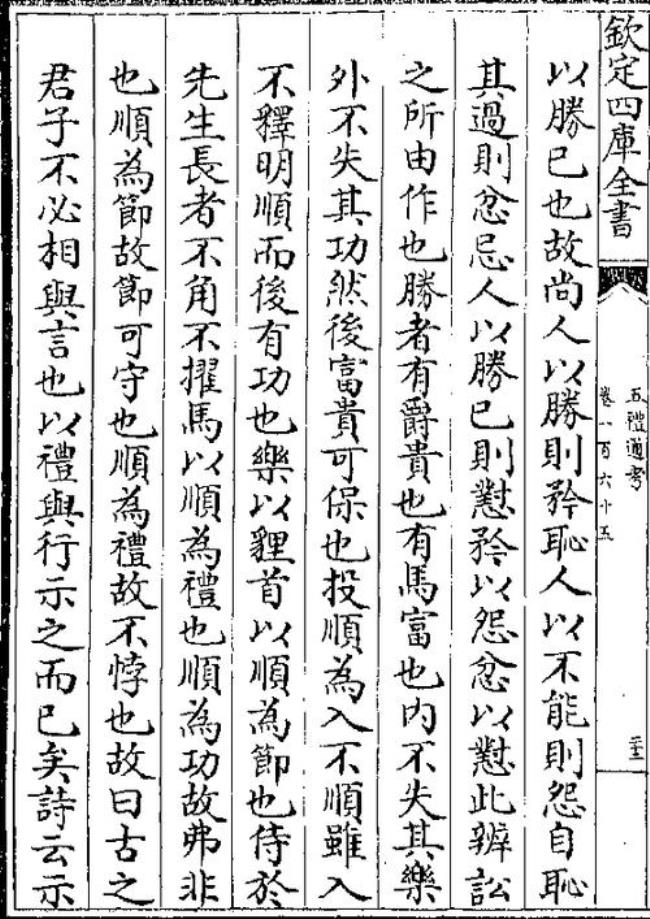 欽定四庫全書
五禮通考
卷一百六十五
以勝已也故尚人以勝則矜恥人以不能則怨自恥
其過則忿忌人以勝已則懟矜以怨忿以懟此辨訟
之所由作也勝者有爵貴也有馬富也内不失其樂
外不失其功然後富貴可保也投順為入不順雖入
不釋明順而後有功也樂以貍首以順為節也侍於
先生長者不角不擢馬以順為禮也順為功故弗非
也順為節故節可守也順為禮故不悖也故曰古之
君子不必相與言也以禮與行示之而已矣詩云示